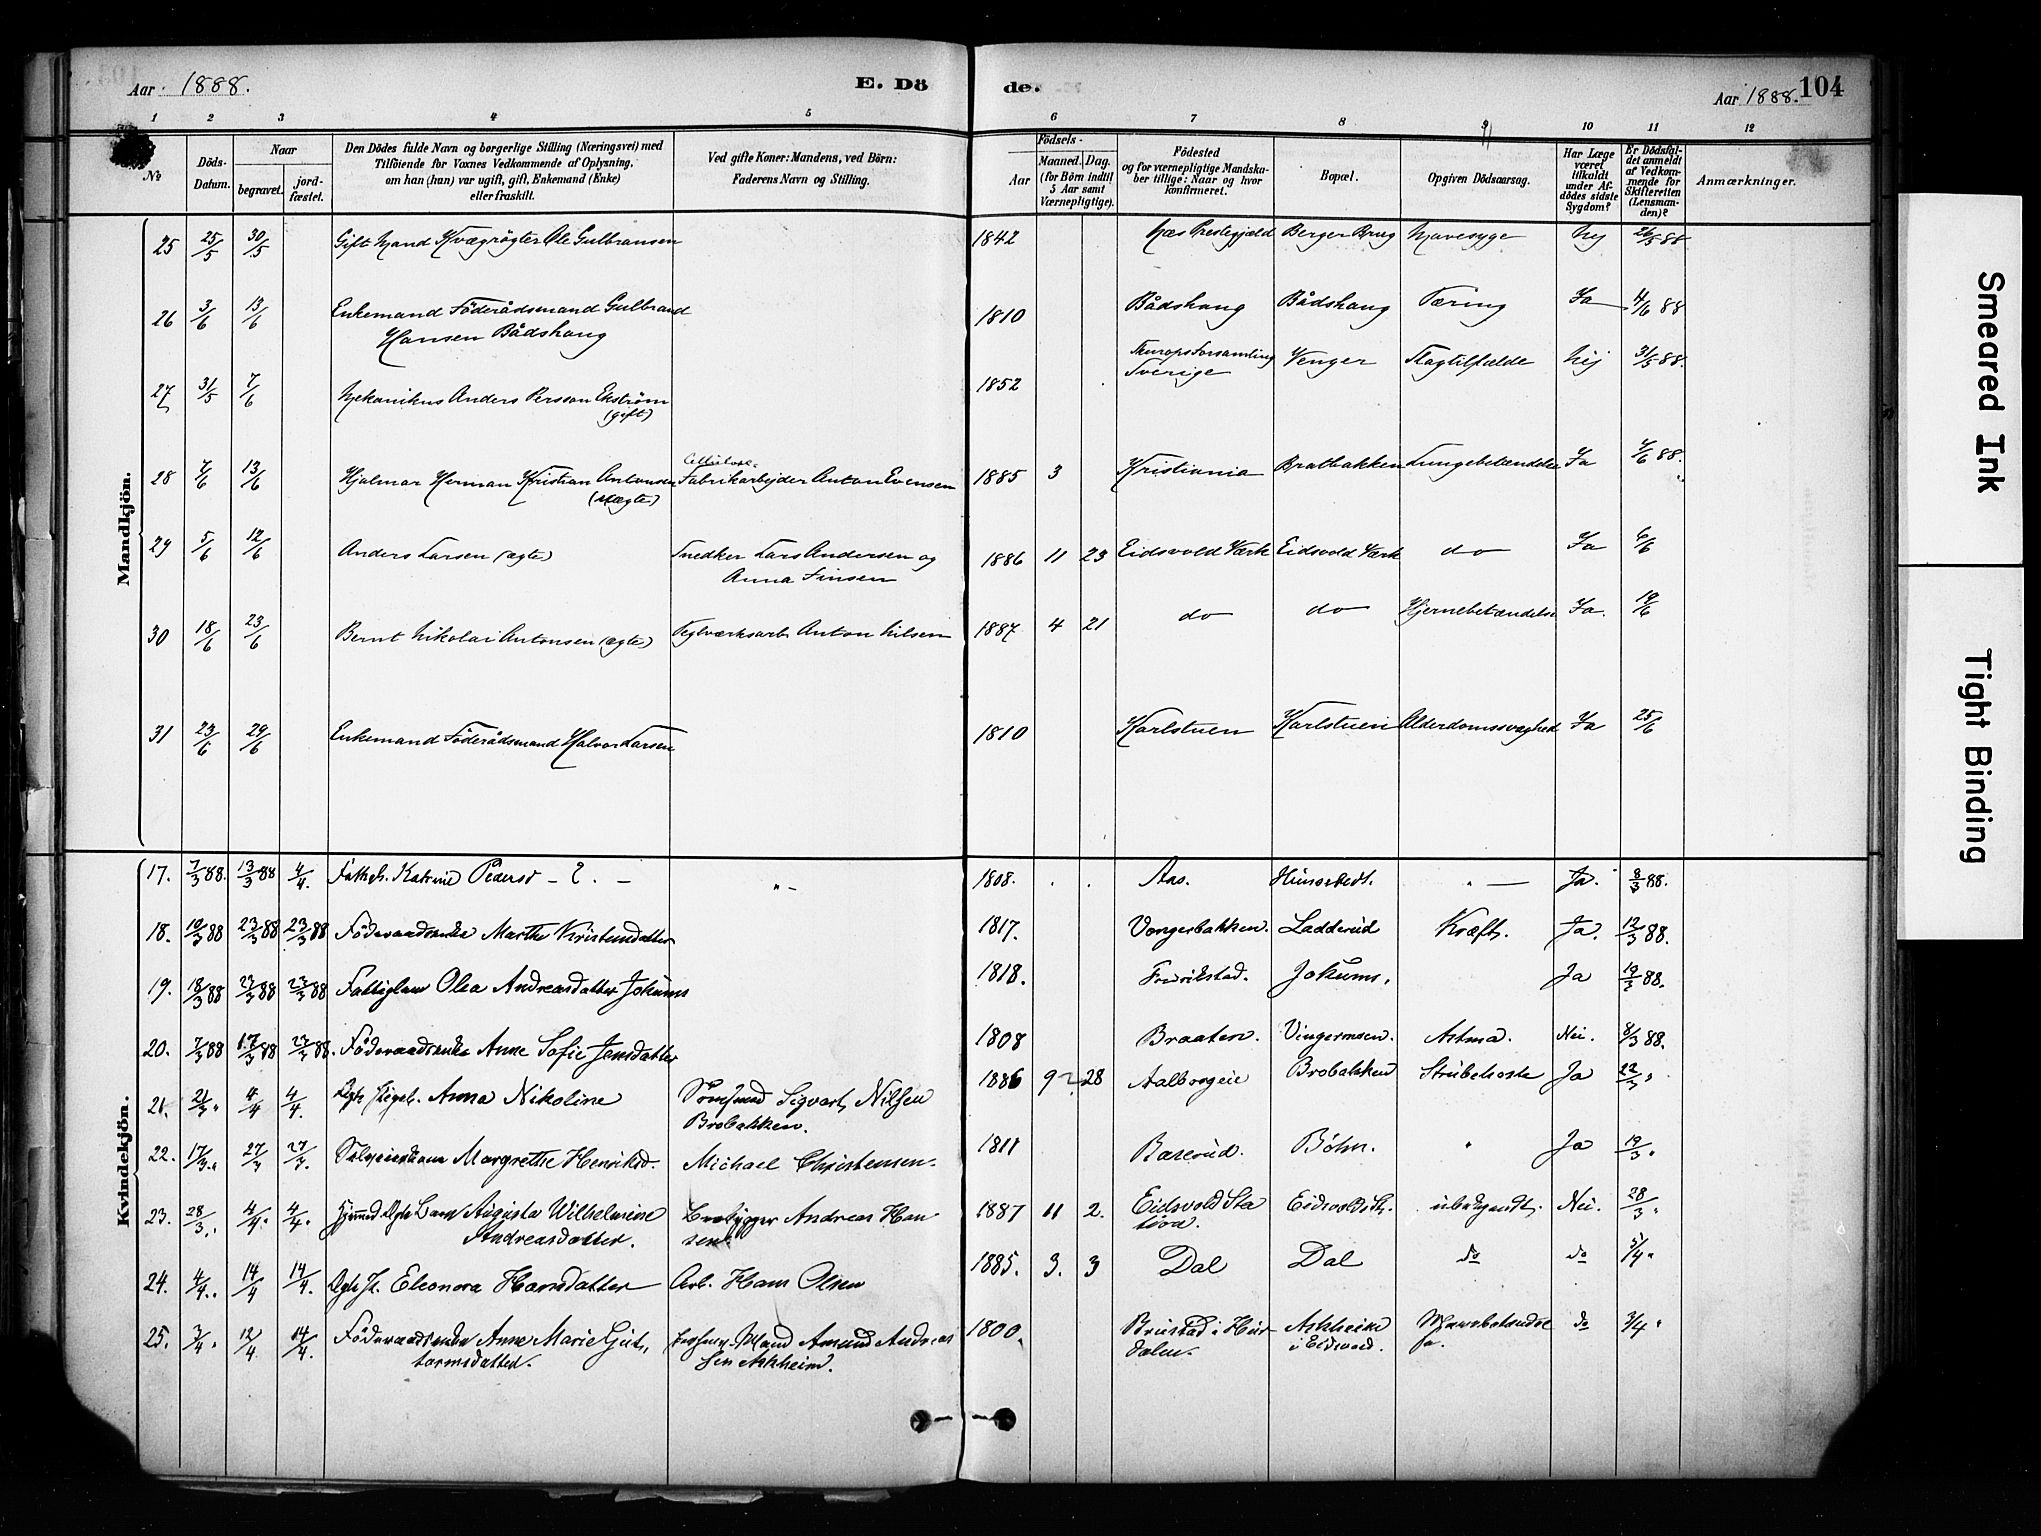 Aar 1888. E. Dö de. Aar 1888. 104
1 2 3 4 5 6 7 8 9 10 11 12
No Döds-Datum. Naar begravet. jord-fæstet. Den Dödes fulde Navn og borgerlige Stilling (Næringsvei) med Tilföiende for Voxnes Vedkommende af Oplysning, om han (hun) var ugift, gift, Enkemand (Enke) eller fraskilt. Ved gifte Koner: Mandens, ved Börn: Faderens Navn og Stilling. Födsels- Aar Maaned. Dag. (for Börn indtil 5 Aar samt Værnepligtige). Födested og for værnepligtige Mandskaber tillige: Naar og hvor konfirmeret. Bopæl. Opgiven Dödsaarsag. Har Læge været tilkaldt under Afdödes sidste Sygdom? Er Dödsfaldet anmeldt af Vedkommende for Skifteretten (Lensmanden)? Anmærkninger.
Mandkjön.
25 25/5 30/5 Gift Mand Kvægrögter Ole Gulbransen 1842 Næs Prestegjæld Berger Brug Mavesyge Nej 26/5 88
26 3/6 13/6 Enkemand Föderådsmand Gulbrand 1810 Bådshaug Bådshaug Tæring Ja 4/6 88
Hansen Bådshaug
27 31/5 7/6 Mekanikus Anders Persson Ekström 1852 Forsamling Venger Slagtilfælde Nej 31/5 88.
(gift) Sverige
28 7/6 13/6 Hjalmar Herman Kristian Antonsen Cellulose-Fabrikarbejder Anton Evensen 1885 3 Kristiania Bratbakken Lungebetændelse Ja 7/6 88.
(uægte)
29 5/6 12/6 Anders Larsen (ægte) Snedker Lars Andersen og 1886 11 23 Eidsvold Værk Eidsvold Værk do Ja 6/6
Anna Jinsen
30 18/6 23/6 Bernt Nikolai Antonsen (ægte) Teglværksarb. Anton Nilsen 1887 4 21 do do Hjernebetændelse Ja. 19/6
31 23/6 29/6 Enkemand Föderådsmand Halvor Larsen 1810 Karlstuen Karlstuen Alderdomssvaghed Ja 25/6
Kvindekjön.
17. 7/3 88. 13/3 88 4/4. Katrine Pedersd - ? . - " - 1808. Aas. " - Ja. 8/3 88.
18. 10/3 88 23/3 88 23/3 88 Föderaadsenke Marthe Kristensdatter 1817. Vongerbakken. Ladderud Kræft. Ja. 12/3 88.
19. 18/3 88 23/3 88 23/3 88 Fattiglem Olea Andreasdatter Jokums 1818. Fredrikstad. Jokums. Ja 19/3 88.
20. 7/3 88 17/3 88 23/3 88. Föderaadsenke Anne Sofie Jensdatter 1808 Braaten. Vingermoen. Astma. Nei. 8/3 88.
21. 21/3 " 4/4 4/4. Anna Nikoline Sigvart Nilsen 1886 9 28 Brobakken Strubehoste Ja 22/3 "
Brobakken.
22. 17/3. " 27/3 27/3. Margrethe Henriksd. Michael Christensen. 1811 Baserud. Böhn. " Ja 19/3 "
23. 28/3. " 4/4. 4/4. Augusta Wilhelmine Andreas Han 1887 11 2. Eidsvold Sta Eidsvold St. ubekjendt. Nei. 28/3 "
Andreasdatter. sen. tion.
24. 4/4. " 14/4 14/4. Eleonora Hansdatter Arb. Hans Olsen 1885. 3. 3 Dal Dal do do 5/4 "
25. 3/4. " 12/4 14/4. Föderaadsenke Anne Marie Gut, Mand Amund Andreas 1800. Brustad i Hur Askheim do 3/4 "
tormsdatter. sen Askheim. dalen. i Eidsvold.
Smeared Ink
Tight Binding